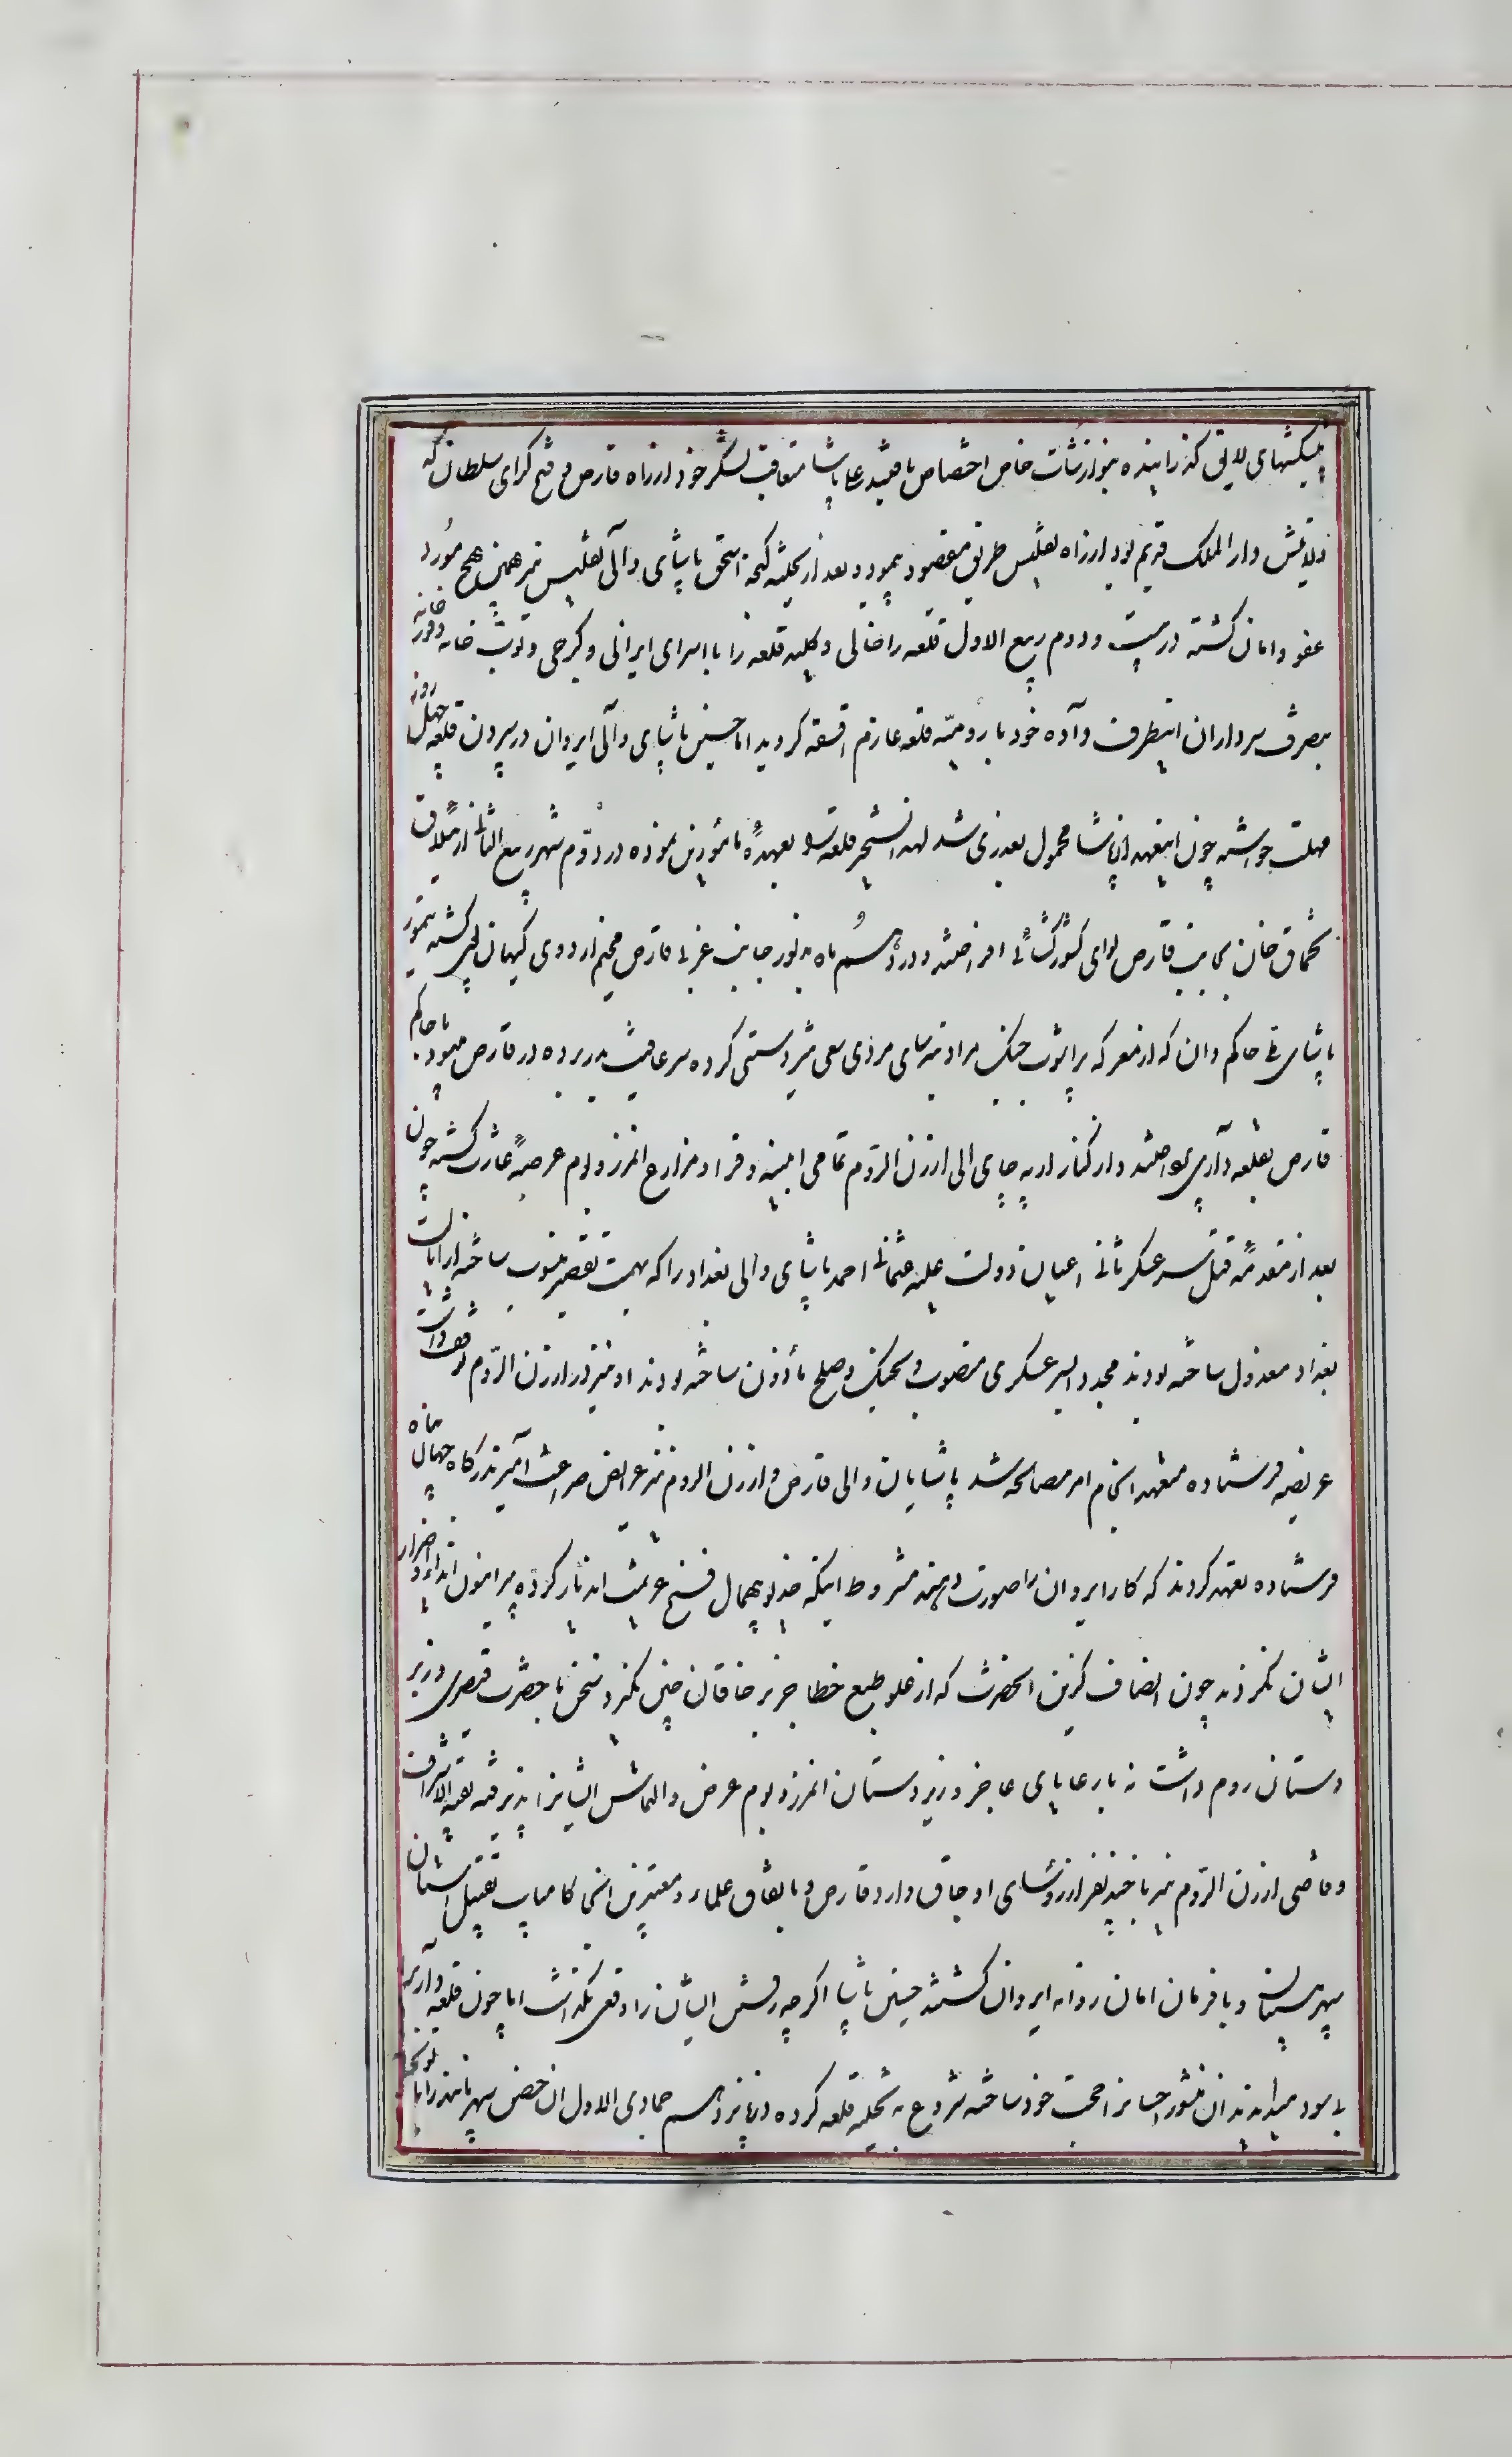 پیشکشهای لایق گذرانیده بنوازشات خاص اختصاص یافتند علی پاشا متعاقب لشکر خود از راه قارص و فتح کرای سلطان که
ولایتش دار الملک قریم بود از راه تفلیس طریق مقصود پیمود و بعد از تخلیه گنجه اسحق پاشای والی تفلیس نیز همین نهج مورد
عفو و امان گشته در بیست و دوم ربیع الاول قلعه را خالی و کلید قلعه را با امرای ایرانی و گرجی و توپخانه و قورخانه
بتصرف سرداران اینطرف داده خود با رومیه قلعه عازم اخسقه گردید اما حسین پاشای والی ایروان در سپردن قلعه چهل روز
مهلت خواسته چون اینعهد آن پاشا محمول بعذری شد لهذا تسخیر قلعه را بعهده مامورین نموده در دوم شهر ربیع الثانی از ییلاق
تخماق خان بجانب قارص لوای کشورگشائی افراختند و در دهم ماه مزبور جانب غربی قارص مخیم اردوی کیهان پوی گشته تیمور
پاشای ملی حاکم وان که از معرکه پرآشوب جنگ مراد تپه سای مردی سعی تیزدستی کرده سر عافیت بدر برده در قارص میبود با حاکم
قارص بقلعه داری پرداختند و از کنار ارپه چای الی ارزن الروم تمامی ابنیه و قرا و مزارع آنمرز و بوم عرصه غارت گشته چون
بعد از مقدمه قتل سر عسکر ثانی اعیان دولت علیه عثمانی احمد پاشای والی بغداد را که بسمت تقصیر منسوب ساخته از ایالت
بغداد معزول ساخته بودند مجددا بسر عسکری منصوب و بجنگ و صلح مأذون ساخته بودند او نیز در ارزن الروم توقف داشت
عریضه فرستاده متعهد انجام امر مصالحه شد پاشایان والی قارص و ارزن الروم نیز عرایض ضراعت آمیز بدرگاه جهان پناه
فرستاده تعهد کردند که کار ایروان را صورت دهند مشروط اینکه خدیو بیهمال فسخ عزیمت اندیار کرده پیرامون ایذاء و اضرار
ایشان نگردند چون انصاف گزین آنحضرت که از علو طبع خطا جز بر خاقان چین نگیرد سخن با حضرت قیصری و زبر
دستان روم داشت نه با رعایای عاجز و زیردستان آنمرز و بوم عرض و التماس ایشانرا پذیرفته نقیب الاشراف
و قاضی ارزن الروم نیز با چند نفر از رؤسای اوجاق وارد قارص و باتفاق علماء و معتبرین آنجا کامیاب تقبیل آستان
سپهر بنیان و با فرمان امان روانه ایروان گشتند حسین پاشا اگرچه رفتن ایشان را وقعی نگذاشت اما چون قلعه داری را
بی سود میدیدند آن منشور احسانرا حجت خود ساخته شروع به تخلیه قلعه کرده در پانزدهم جمادی الاول آن حصن سپهر مانند را با توپخانه